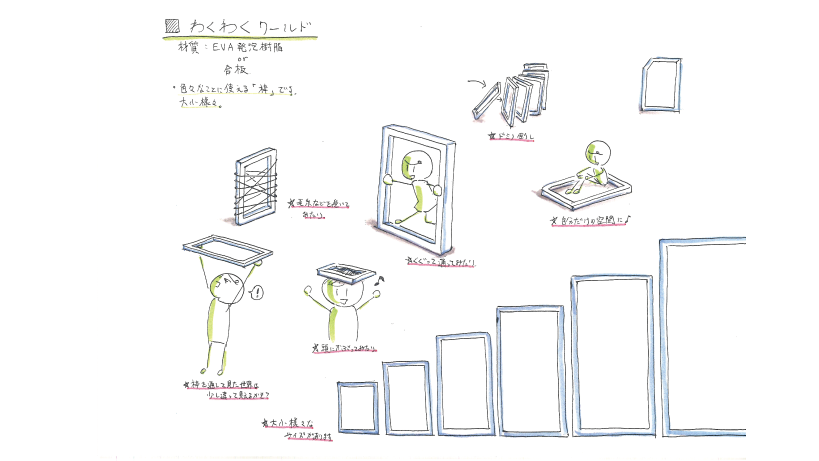 わくわくワールド
材質：EVA発泡樹脂
or
合板
・色々なことに使える「枠」です。
大小様々。
★ドミノ倒し
★毛糸などを巻いて
みたり。
★自分だけの空間に♪
★くぐって通ってみたり
!
★頭にかぶってみたり。
★枠を通して見た世界は
少し違って見えるかも?
★大小様々な
サイズがあります